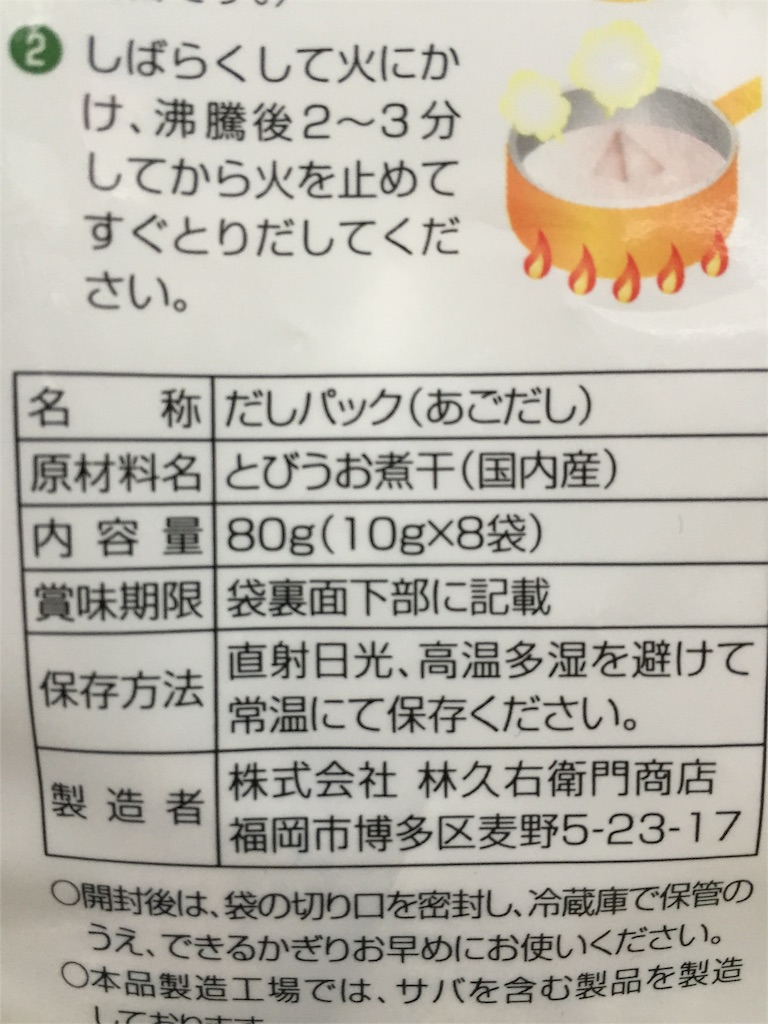 2 しばらくして火にか
け、沸騰後2〜3分
してから火を止めて
すぐとりだしてくだ
さい。
名称 だしパック(あごだし)
原材料名 とびうお煮干(国内産)
内容量 80g(10g×8袋)
賞味期限 袋裏面下部に記載
保存方法 直射日光、高温多湿を避けて
常温にて保存ください。
製造者 株式会社 林久右衛門商店
福岡市博多区麦野5-23-17
○開封後は、袋の切り口を密封し、冷蔵庫で保管の
うえ、できるかぎりお早めにお使いください。
○本品製造工場では、サバを含む製品を製造
しております